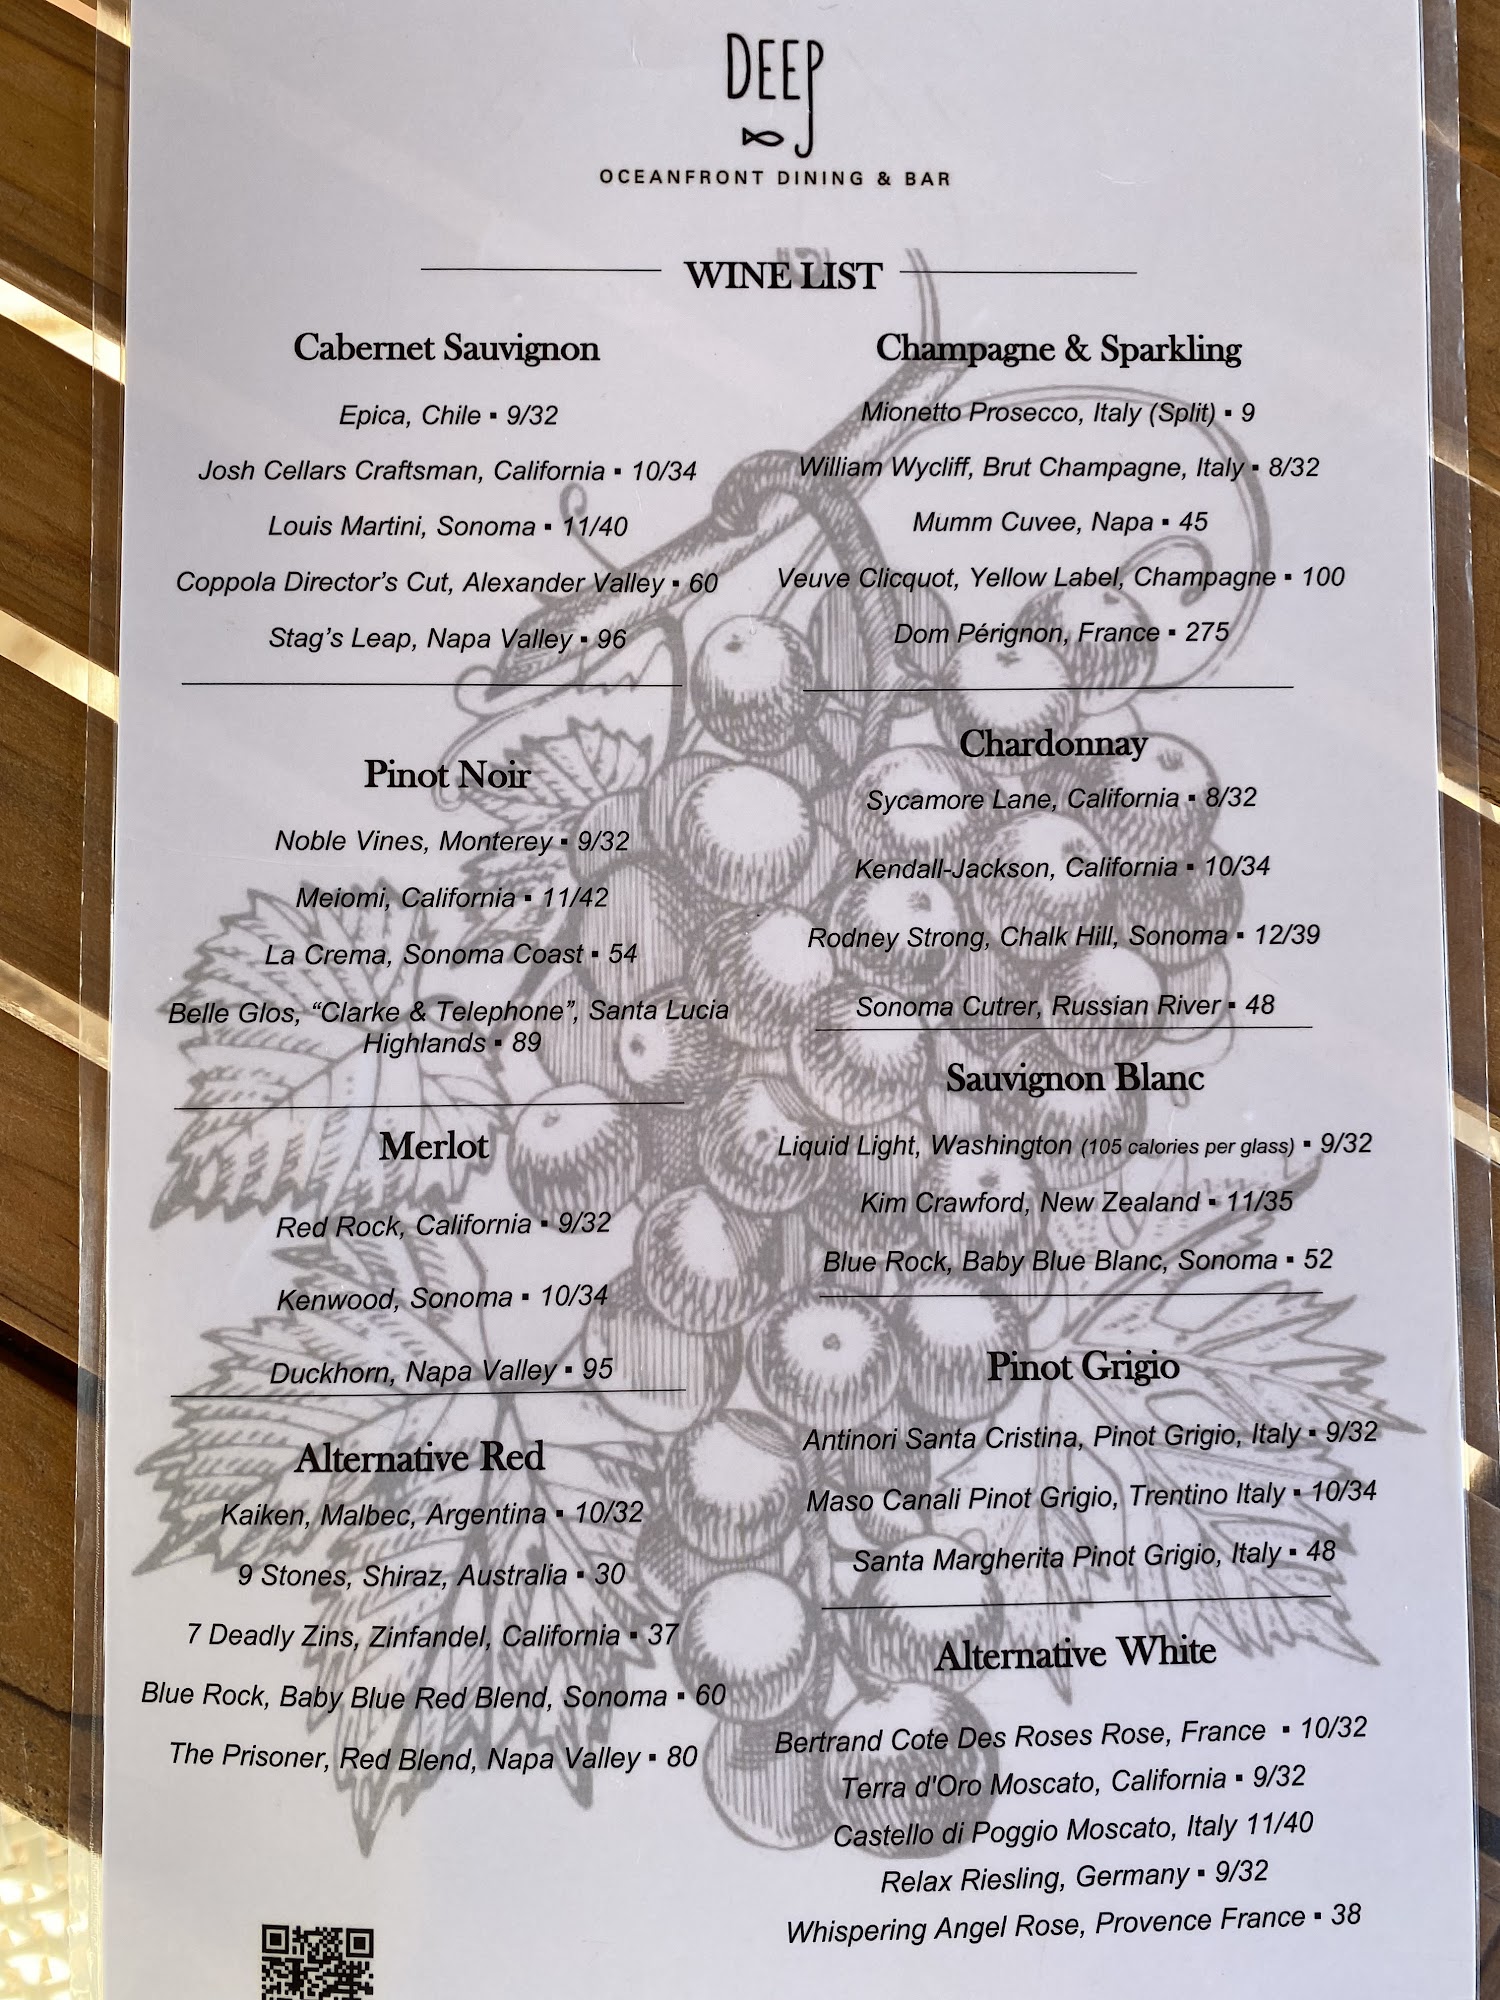 DEEP
OCEANFRONT DINING & BAR
WINE LIST
Cabernet Sauvignon
Epica, Chile ▪ 9/32
Josh Cellars Craftsman, California ▪ 10/34
Louis Martini, Sonoma ▪ 11/40
Coppola Director's Cut, Alexander Valley ▪ 60
Stag's Leap, Napa Valley ▪ 96
Pinot Noir
Noble Vines, Monterey ▪ 9/32
Meiomi, California ▪ 11/42
La Crema, Sonoma Coast ▪ 54
Belle Glos, “Clarke & Telephone”, Santa Lucia
Highlands ▪ 89
Merlot
Red Rock, California ▪ 9/32
Kenwood, Sonoma ▪ 10/34
Duckhorn, Napa Valley ▪ 95
Alternative Red
Kaiken, Malbec, Argentina ▪ 10/32
9 Stones, Shiraz, Australia ▪ 30
7 Deadly Zins, Zinfandel, California ▪ 37
Blue Rock, Baby Blue Red Blend, Sonoma ▪ 60
The Prisoner, Red Blend, Napa Valley ▪ 80
Champagne & Sparkling
Mionetto Prosecco, Italy (Split) ▪ 9
William Wycliff, Brut Champagne, Italy ▪ 8/32
Mumm Cuvee, Napa ▪ 45
Veuve Clicquot, Yellow Label, Champagne ▪ 100
Dom Pérignon, France ▪ 275
Chardonnay
Sycamore Lane, California ▪ 8/32
Kendall-Jackson, California ▪ 10/34
Rodney Strong, Chalk Hill, Sonoma ▪ 12/39
Sonoma Cutrer, Russian River ▪ 48
Sauvignon Blanc
Liquid Light, Washington (105 calories per glass) ▪ 9/32
Kim Crawford, New Zealand ▪ 11/35
Blue Rock, Baby Blue Blanc, Sonoma ▪ 52
Pinot Grigio
Antinori Santa Cristina, Pinot Grigio, Italy ▪ 9/32
Maso Canali Pinot Grigio, Trentino Italy ▪ 10/34
Santa Margherita Pinot Grigio, Italy ▪ 48
Alternative White
Bertrand Cote Des Roses Rose, France ▪ 10/32
Terra d'Oro Moscato, California ▪ 9/32
Castello di Poggio Moscato, Italy 11/40
Relax Riesling, Germany ▪ 9/32
Whispering Angel Rose, Provence France ▪ 38